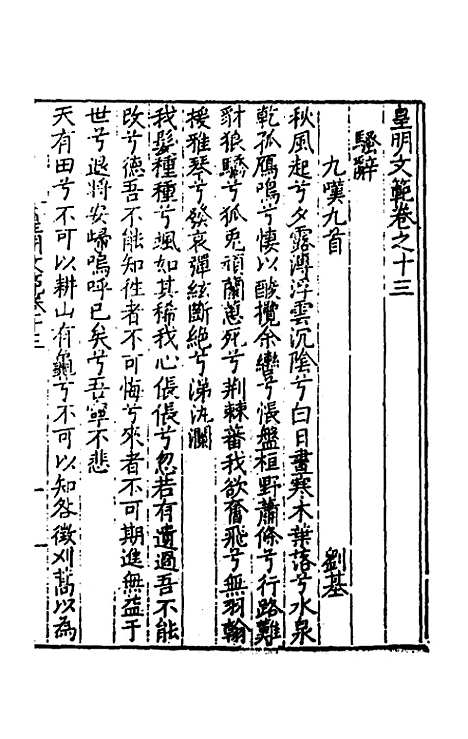 皇明文範卷之十三
騷辭
九嘆九首
劉基
秋風起兮夕露漙浮雲沉陰兮白日晝寒木葉落兮水泉
乾孤鴈嗚兮悽以酸攬余轡兮悵盤桓野蕭條兮行路難
豺狼驕兮狐兎頑蘭蕙死兮荆棘蕃我欲奮飛兮無羽翰
援雅琴兮發哀彈絃斷絶兮涕汍瀾
我髮種種兮颯如其稀我心倀倀兮忽若有遺過吾不能
改兮德吾不能知徃者不可悔兮來者不可期進無益于
世兮退將安歸嗚呼已矣兮吾寧不悲
天有田兮不可以耕山有龜兮不可以知咎徵刈蒿以為
皇明文范卷十三